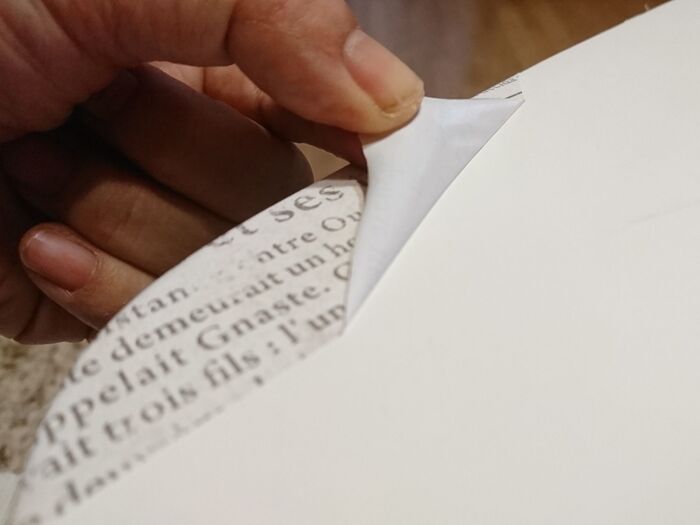 et ses
ntre Ou
stan
te demeurait un ho
ppelait Gnaste.
ait trois fils : l'un